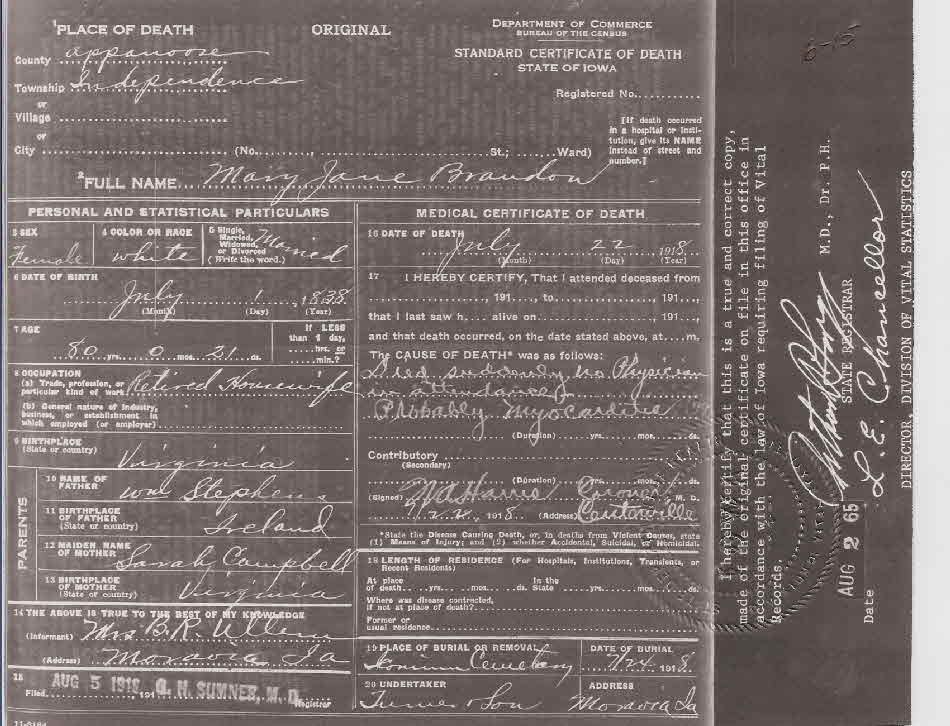 ¹PLACE OF DEATH
ORIGINAL
DEPARTMENT OF COMMERCE
BUREAU OF THE CENSUS
STANDARD CERTIFICATE OF DEATH
STATE OF IOWA
County Appanoose
Township Independence
or
Village
or
City (No. , St.; , Ward)
Registered No.
[If death occurred
in a hospital or insti-
tution, give its NAME
instead of street and
number.]
² FULL NAME Mary Jane Brandon
PERSONAL AND STATISTICAL PARTICULARS
3 SEX
Female
4 COLOR OR RACE
white
5 Single,
Married,
Widowed,
or Divorced
(Write the word.)
Married
6 DATE OF BIRTH
July 1, 1838
(Month) (Day) (Year)
7 AGE
80 yrs. 0 mos. 21 ds.
If LESS
than 1 day,
hrs. or
min.
8 OCCUPATION
(a) Trade, profession, or
particular kind of work Retired Housewife
(b) General nature of industry,
business, or establishment in
which employed (or employer)
9 BIRTHPLACE
(State or country)
Virginia
PARENTS
10 NAME OF
FATHER
Wm Stephens
11 BIRTHPLACE
OF FATHER
(State or country)
Ireland
12 MAIDEN NAME
OF MOTHER
Sarah Campbell
13 BIRTHPLACE
OF MOTHER
(State or country)
Virginia
14 THE ABOVE IS TRUE TO THE BEST OF MY KNOWLEDGE
(Informant) Mrs. B. R.
(Address) Moravia Ia
15
Filed AUG 5 1918 191 G. H. SUMNER, M. D.
Registrar
11-3184
MEDICAL CERTIFICATE OF DEATH
16 DATE OF DEATH
July 22, 1918
(Month) (Day) (Year)
17 I HEREBY CERTIFY, That I attended deceased from
, 191 , to , 191 ,
that I last saw h alive on , 191 ,
and that death occurred, on the date stated above, at m.
The CAUSE OF DEATH* was as follows:
Died suddenly no Physician
in attendance
Probably myocardine
(Duration) yrs. mos. ds.
Contributory
(Secondary)
(Duration) yrs. mos. ds.
(Signed) Coroner M. D.
7/22, 1918 (Address) Centerville
*State the Disease Causing Death, or, in deaths from Violent Causes, state
(1) Means of Injury; and (2) whether Accidental, Suicidal, or Homicidal.
18 LENGTH OF RESIDENCE (For Hospitals, Institutions, Transients, or
Recent Residents)
At place
of death yrs. mos. ds.
In the
State yrs. mos. ds.
Where was disease contracted,
if not at place of death?
Former or
usual residence
19 PLACE OF BURIAL OR REMOVAL
Cemetery
DATE OF BURIAL
7/24 1918
20 UNDERTAKER
Turner & Son
ADDRESS
Moravia Ia
5-15
I hereby certify that this is a true and correct copy,
made of the original certificate on file in this office in
accordance with the law of Iowa requiring filing of Vital
Records.
M.D., Dr. P.H.
STATE REGISTRAR
AUG 2 65
Date
L. E. Chancellor
DIRECTOR, DIVISION OF VITAL STATISTICS